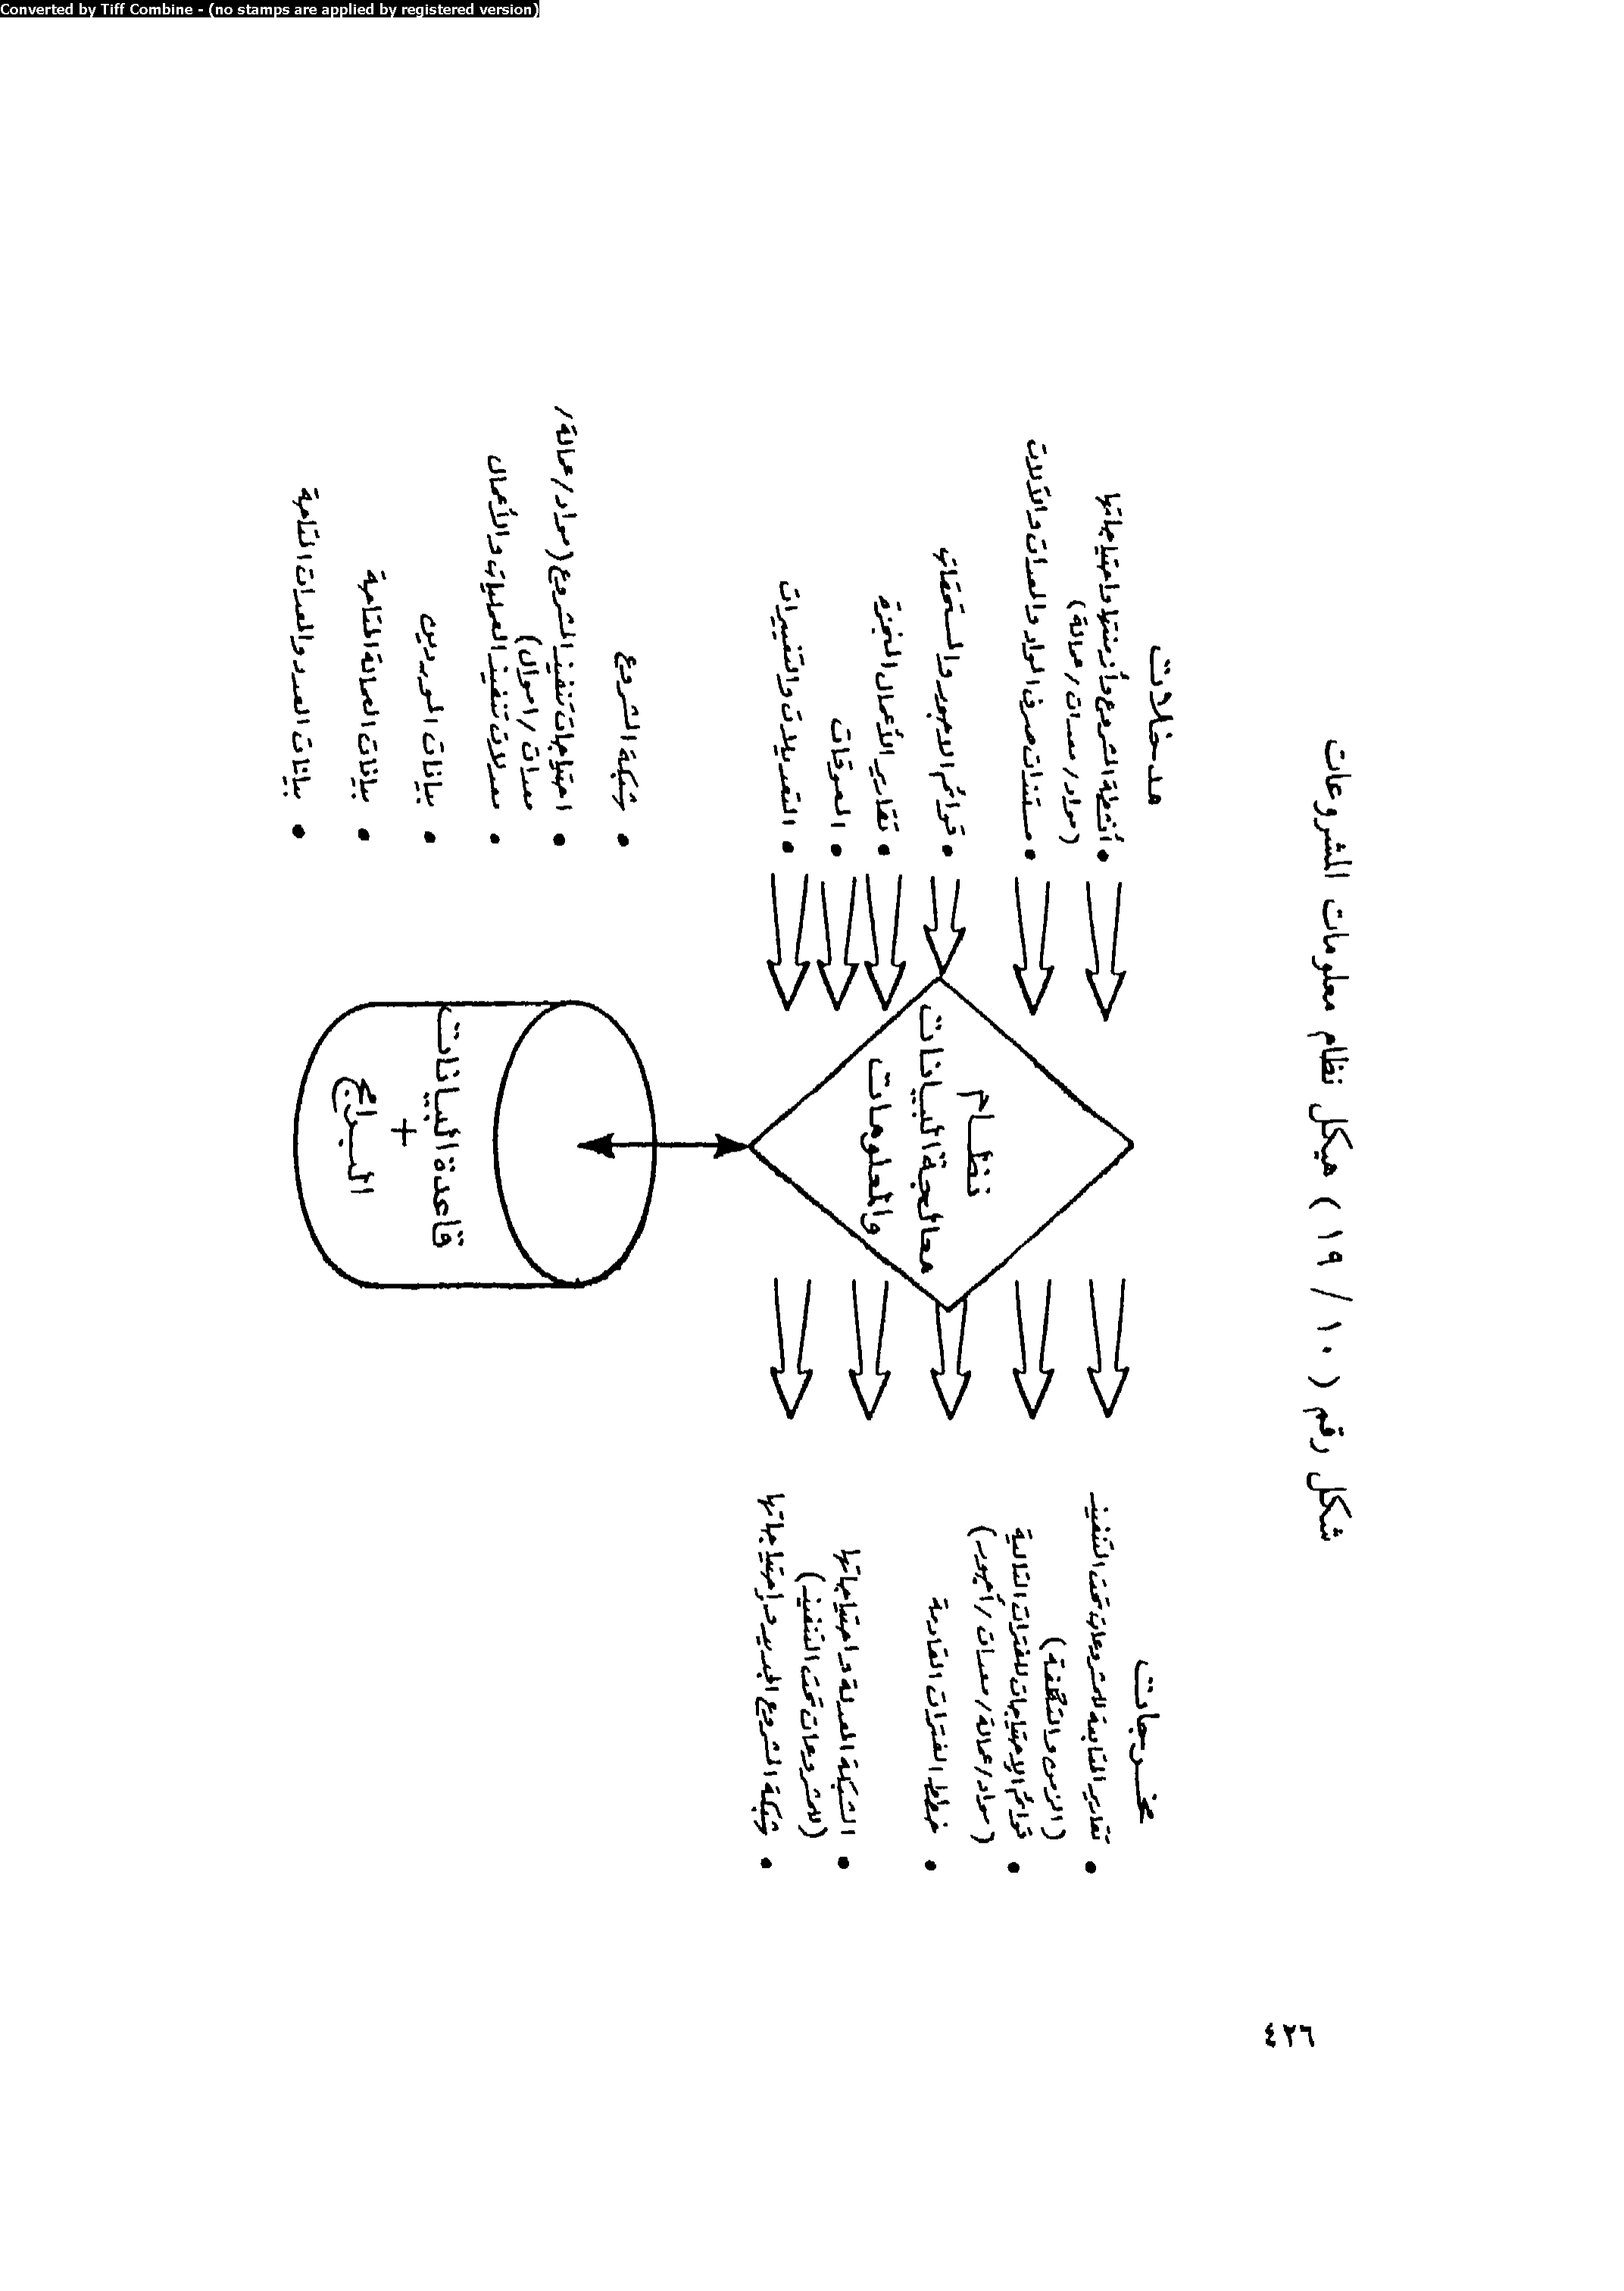 Converted by Tiff Combine - (no stamps are applied by registered version)
شكل رقم ( ١٠ / ١٩ ) هيكل نظام معلومات المشروعات
مدخلات
• أنشطة المشروع وأزمنتها واحتياجاتها
(مواد/معدات/عمالة)
• مستندات صرف المواد والمعدات والآلات
• قوائم الاجور والمستحقات
• تقارير الأعمال المنجزة
• المعوقات
• التعديلات والتغييرات
نظام
معالجة البيانات
والمعلومات
مخرجات
• تقارير المتابعة للمشروعات تحت التنفيذ
(الزمن والتكلفة)
• قوائم الاحتياجات للفترات التالية
(مواد/عمالة/معدات/أجور)
• خطط الفترات القادمة
• الشبكة المعدلة واحتياجاتها
(للمشروعات تحت التنفيذ)
• شبكة المشروع الجديد واحتياجاتها
• شبكة المشروع
• احتياجات تنفيذ المشروع (مواد/عمالة/
معدات/اموال)
• معدلات تنفيذ العمليات والأعمال
• بيانات الموردين
• بيانات العمالة المتاحة
• بيانات العدد والمعدات المتاحة
قاعدة البيانات
+
البرامج
٤٢٦